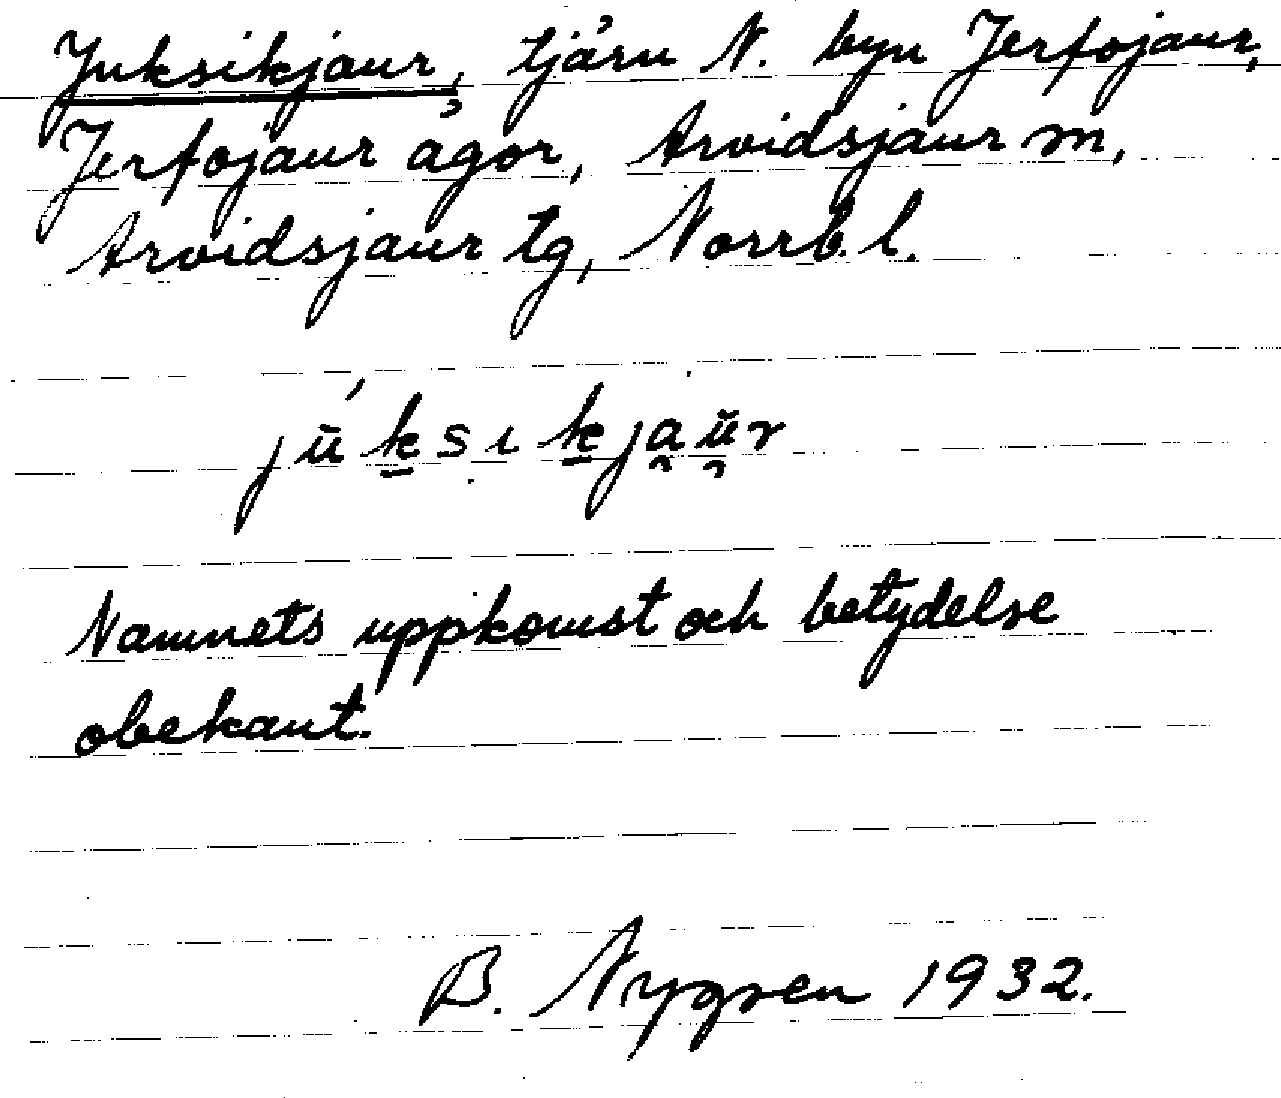 Juksikjaur, tjärn N. byn Jerfojaur,
Jerfojaur ägor, Arvidsjaur sn,
Arvidsjaur tg, Norrb. l.
jū́k̠sık̠ja̯ŭ̯r
Namnets uppkomst och betydelse
obekant.
B. Nygren 1932.